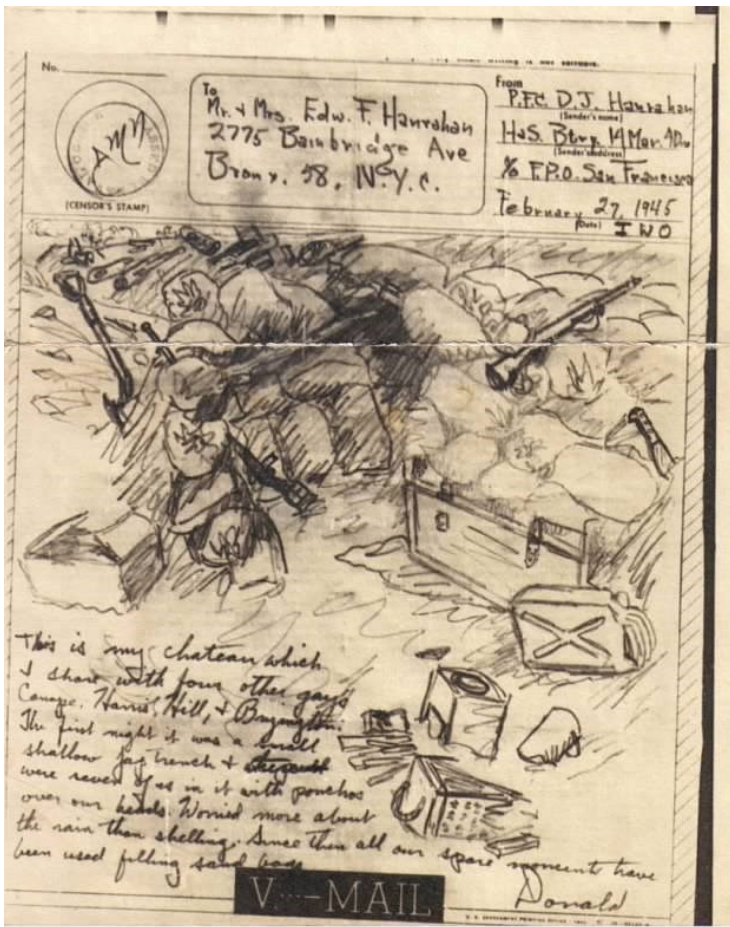 No.
(CENSOR'S STAMP)
To
Mr. & Mrs. Edw. F. Hanrahan
2775 Bainbridge Ave
Bronx, 58, N.Y.C.
From
P.F.C. D.J. Hanrahan
(Sender's name)
H&S. Btry. 14 Mar.
(Sender's address)
℅ F.P.O. San Francisco
February 27, 1945
(Date) IWO
This is my chateau which
I share with four other guys
Canape, Harris, Hill, &
The first night it was a small
shallow trench &
were seven of us in it with ponchos
over our heads. Worried more about
the rain than shelling. Since then all our spare moments have
been used filling sand bags
Donald
V···—MAIL